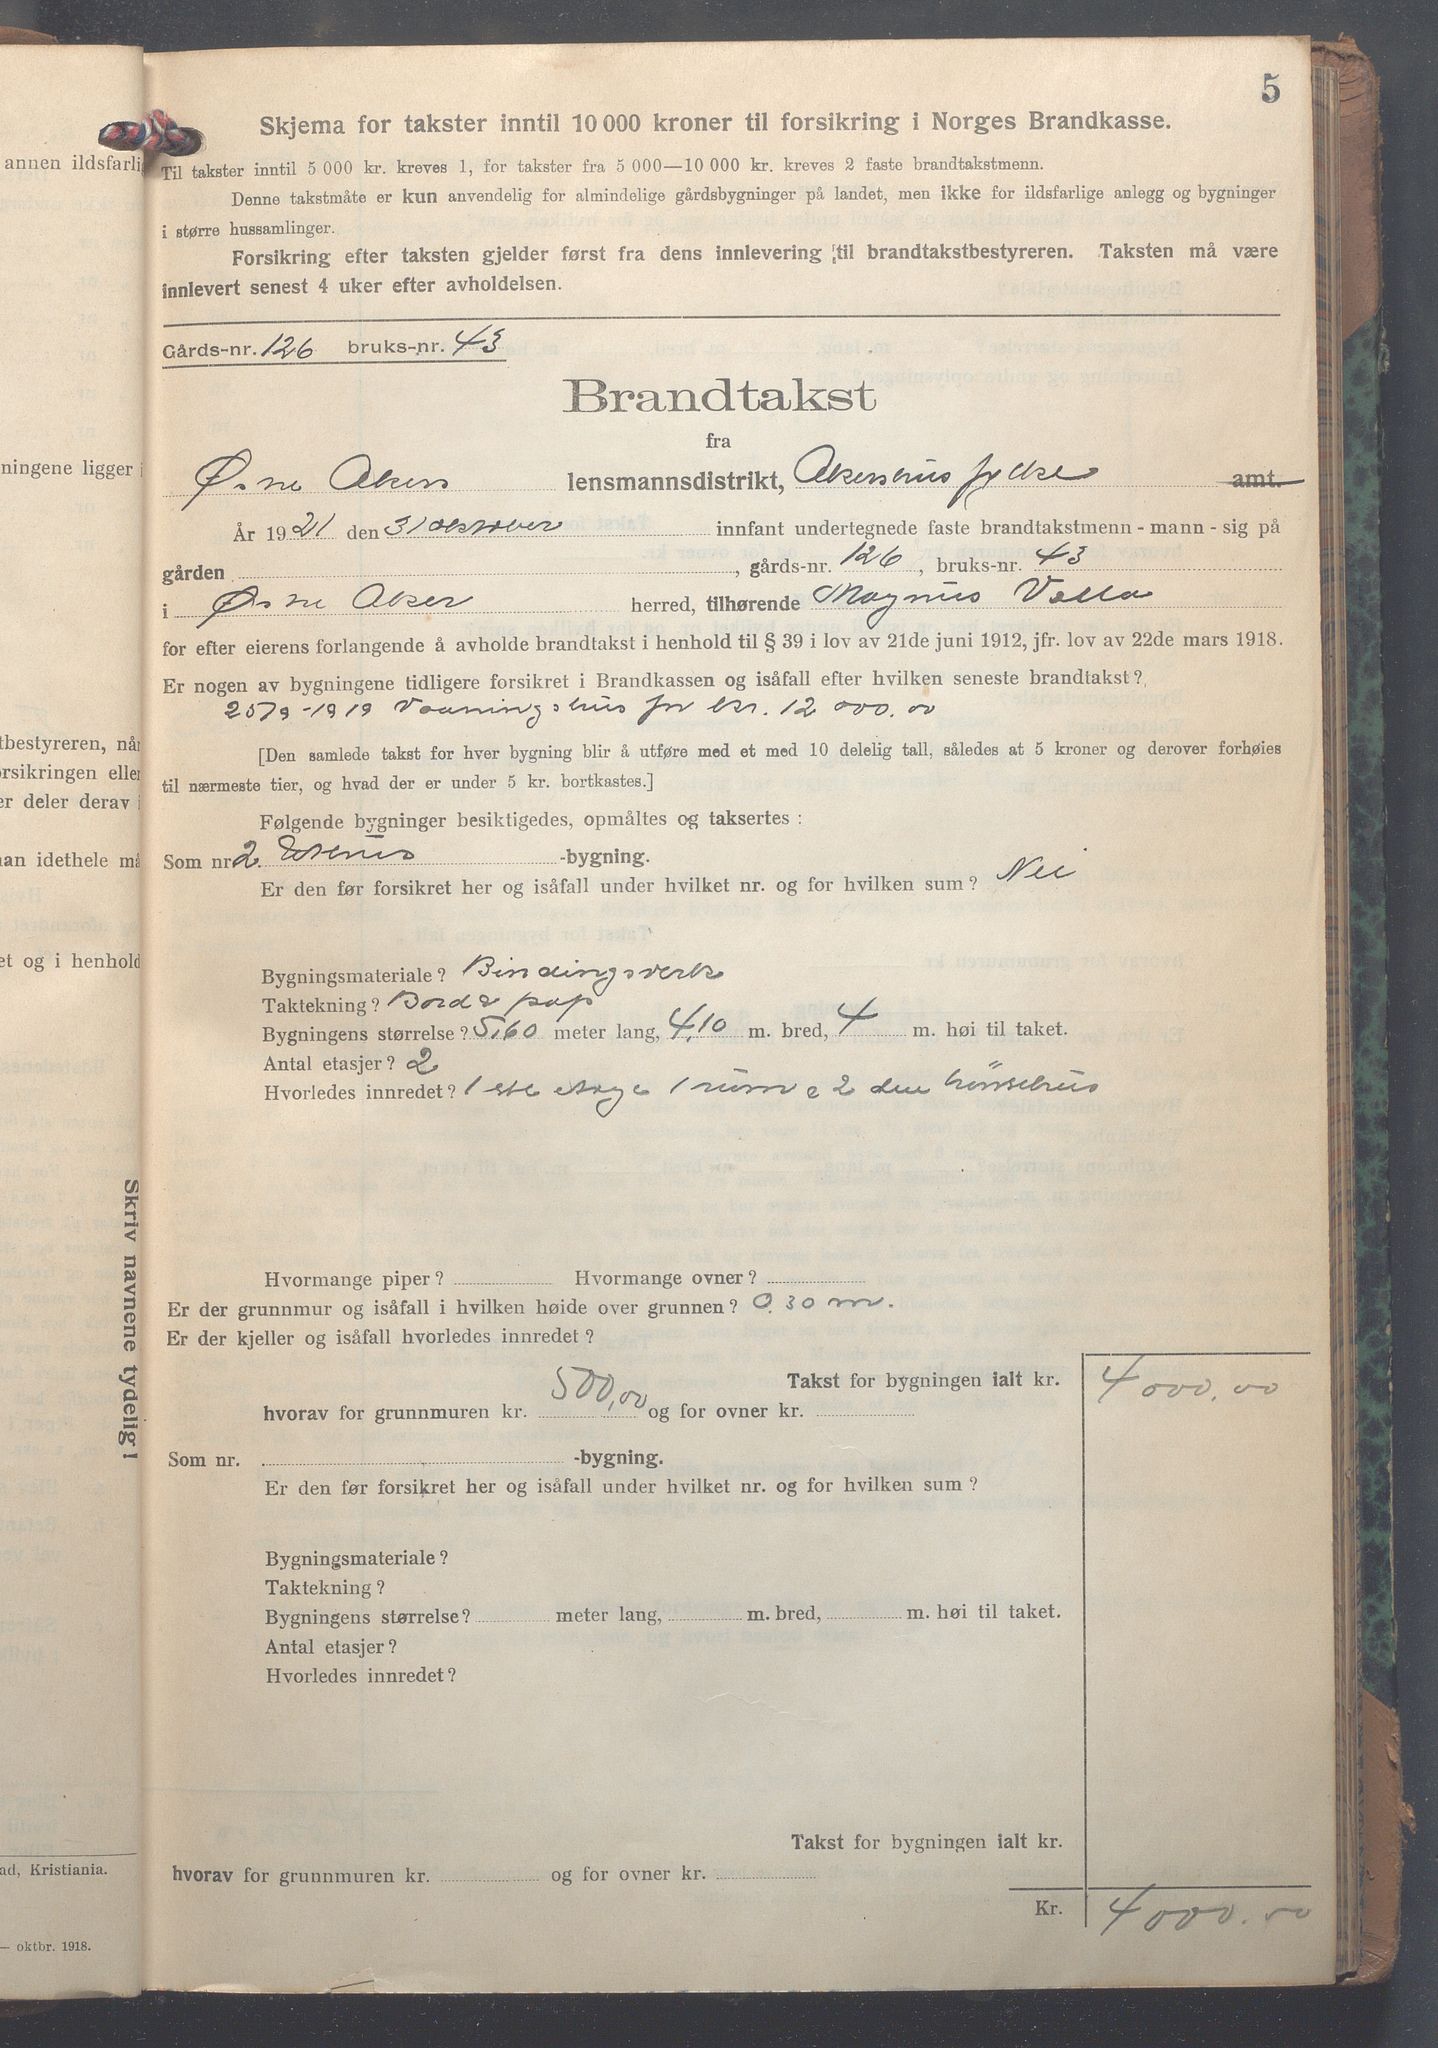 5
Skjema for takster inntil 10 000 kroner til forsikring i Norges Brandkasse.
Til takster inntil 5 000 kr. kreves 1, for takster fra 5 000—10 000 kr. kreves 2 faste brandtakstmenn.
Denne takstmåte er kun anvendelig for almindelige gårdsbygninger på landet, men ikke for ildsfarlige anlegg og bygninger
i større hussamlinger.
Forsikring efter taksten gjelder først fra dens innlevering til brandtakstbestyreren. Taksten må være
innlevert senest 4 uker efter avholdelsen.
Gårds-nr. 126 bruks-nr. 43
Brandtakst
fra
Østre Akers lensmannsdistrikt, Akershus fylke amt.
År 1921 den 31 oktober innfant undertegnede faste brandtakstmenn - mann - sig på
gården , gårds-nr. 126, bruks-nr. 43
i Østre Aker herred, tilhørende Magnus Valla
for efter eierens forlangende å avholde brandtakst i henhold til § 39 i lov av 21de juni 1912, jfr. lov av 22de mars 1918.
Er nogen av bygningene tidligere forsikret i Brandkassen og isåfall efter hvilken seneste brandtakst?
25/9-1919 Vaaningshus for kr. 12 000.00
[Den samlede takst for hver bygning blir å utføre med et med 10 delelig tall, således at 5 kroner og derover forhøies
til nærmeste tier, og hvad der er under 5 kr. bortkastes.]
Følgende bygninger besiktigedes, opmåltes og taksertes:
Som nr 2. -bygning.
Er den før forsikret her og isåfall under hvilket nr. og for hvilken sum? Nei
Bygningsmateriale? Bindingsverk
Taktekning? Bord & pap
Bygningens størrelse? 5,60 meter lang, 4,10 m. bred, 4 m. høi til taket.
Antal etasjer? 2
Hvorledes innredet? 1ste etage 1 rum & 2den hønsehus
Hvormange piper? Hvormange ovner?
Er der grunnmur og isåfall i hvilken høide over grunnen? 0.30 m.
Er der kjeller og isåfall hvorledes innredet?
Takst for bygningen ialt kr. 4 000.00
hvorav for grunnmuren kr. 500,00 og for ovner kr.
Som nr. -bygning.
Er den før forsikret her og isåfall under hvilket nr. og for hvilken sum?
Bygningsmateriale?
Taktekning?
Bygningens størrelse? meter lang, m. bred, m. høi til taket.
Antal etasjer?
Hvorledes innredet?
Takst for bygningen ialt kr.
hvorav for grunnmuren kr. og for ovner kr.
Kr. 4 000.00
annen ildsfarlig
ningene ligger i
tbestyreren, når
orsikringen eller
er deler derav i
an idethele må
et og i henhold
Skriv navnene tydelig!
ad, Kristiania.
— oktbr. 1918.